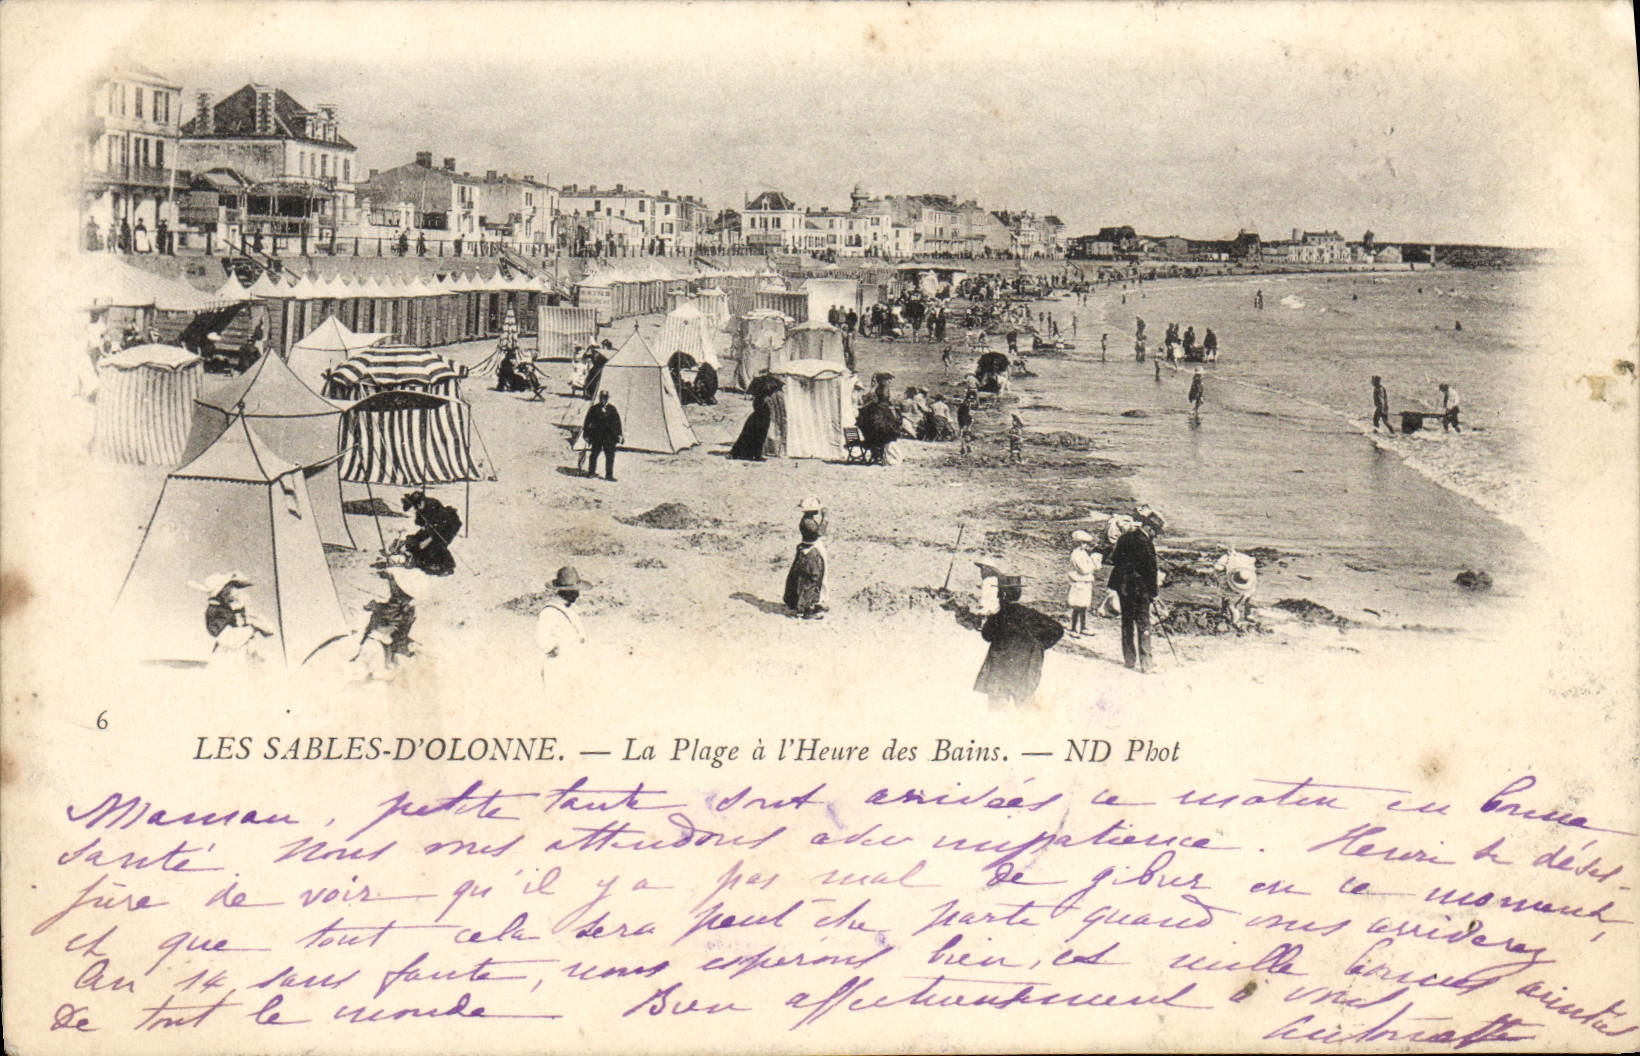 6
LES SABLES-D'OLONNE. — La Plage à l'Heure des Bains. — ND Phot
Maman, petite tante sont arrivées ce matin en bonne
santé. Nous vous attendons avec impatience. Henri se déses-
père de voir qu'il y a pas mal de gibier en ce moment,
et que tout cela sera peut être parti quand vous arriverez
Au 14 sans faute, nous espérons bien, et mille bonnes amitiés
de tout le monde Bien affectueusement à vous,
Antoinette